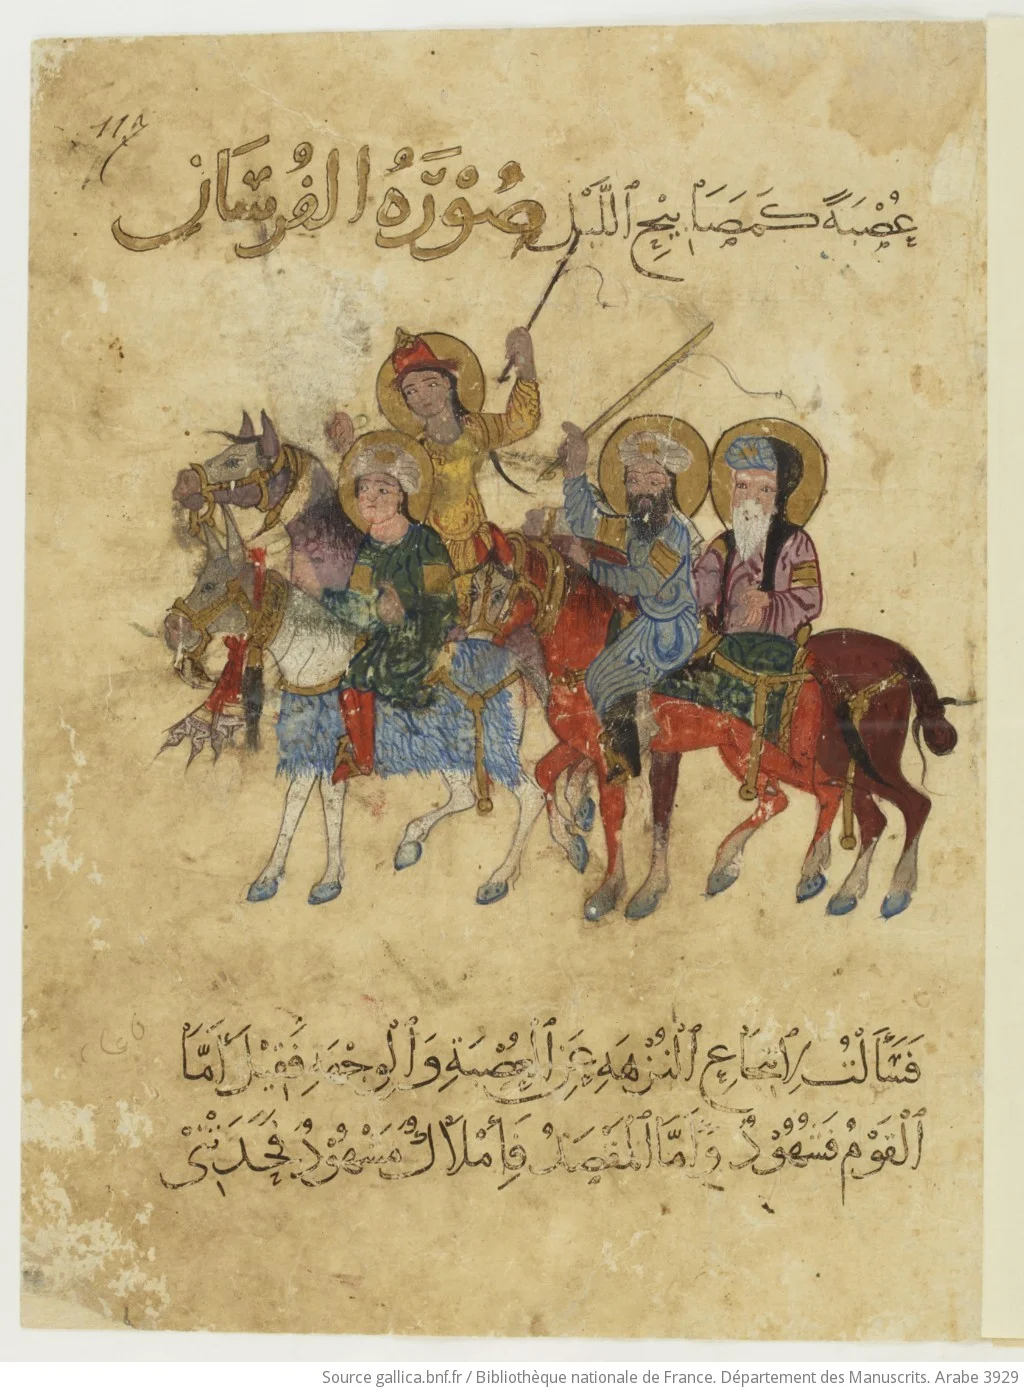 عُصْبَةً كَمَصَابِيْحِ اللَّيْلِ صُوْرَةُ الفُرْسَان
فَسَأَلْتُ لِانْتِجَاعِ النُّزْهَةِ عَنِ الْعُصْبَةِ وَالْوِجْهَةِ فَقِيْلَ أَمَّا
الْقَوْمُ فَشُهُوْدٌ وَأَمَّا الْمَقْصَدُ فَإِمْلَاكٌ مَشْهُوْدٌ فَحَدَتْنِي
Source gallica.bnf.fr / Bibliothèque nationale de France. Département des Manuscrits. Arabe 3929